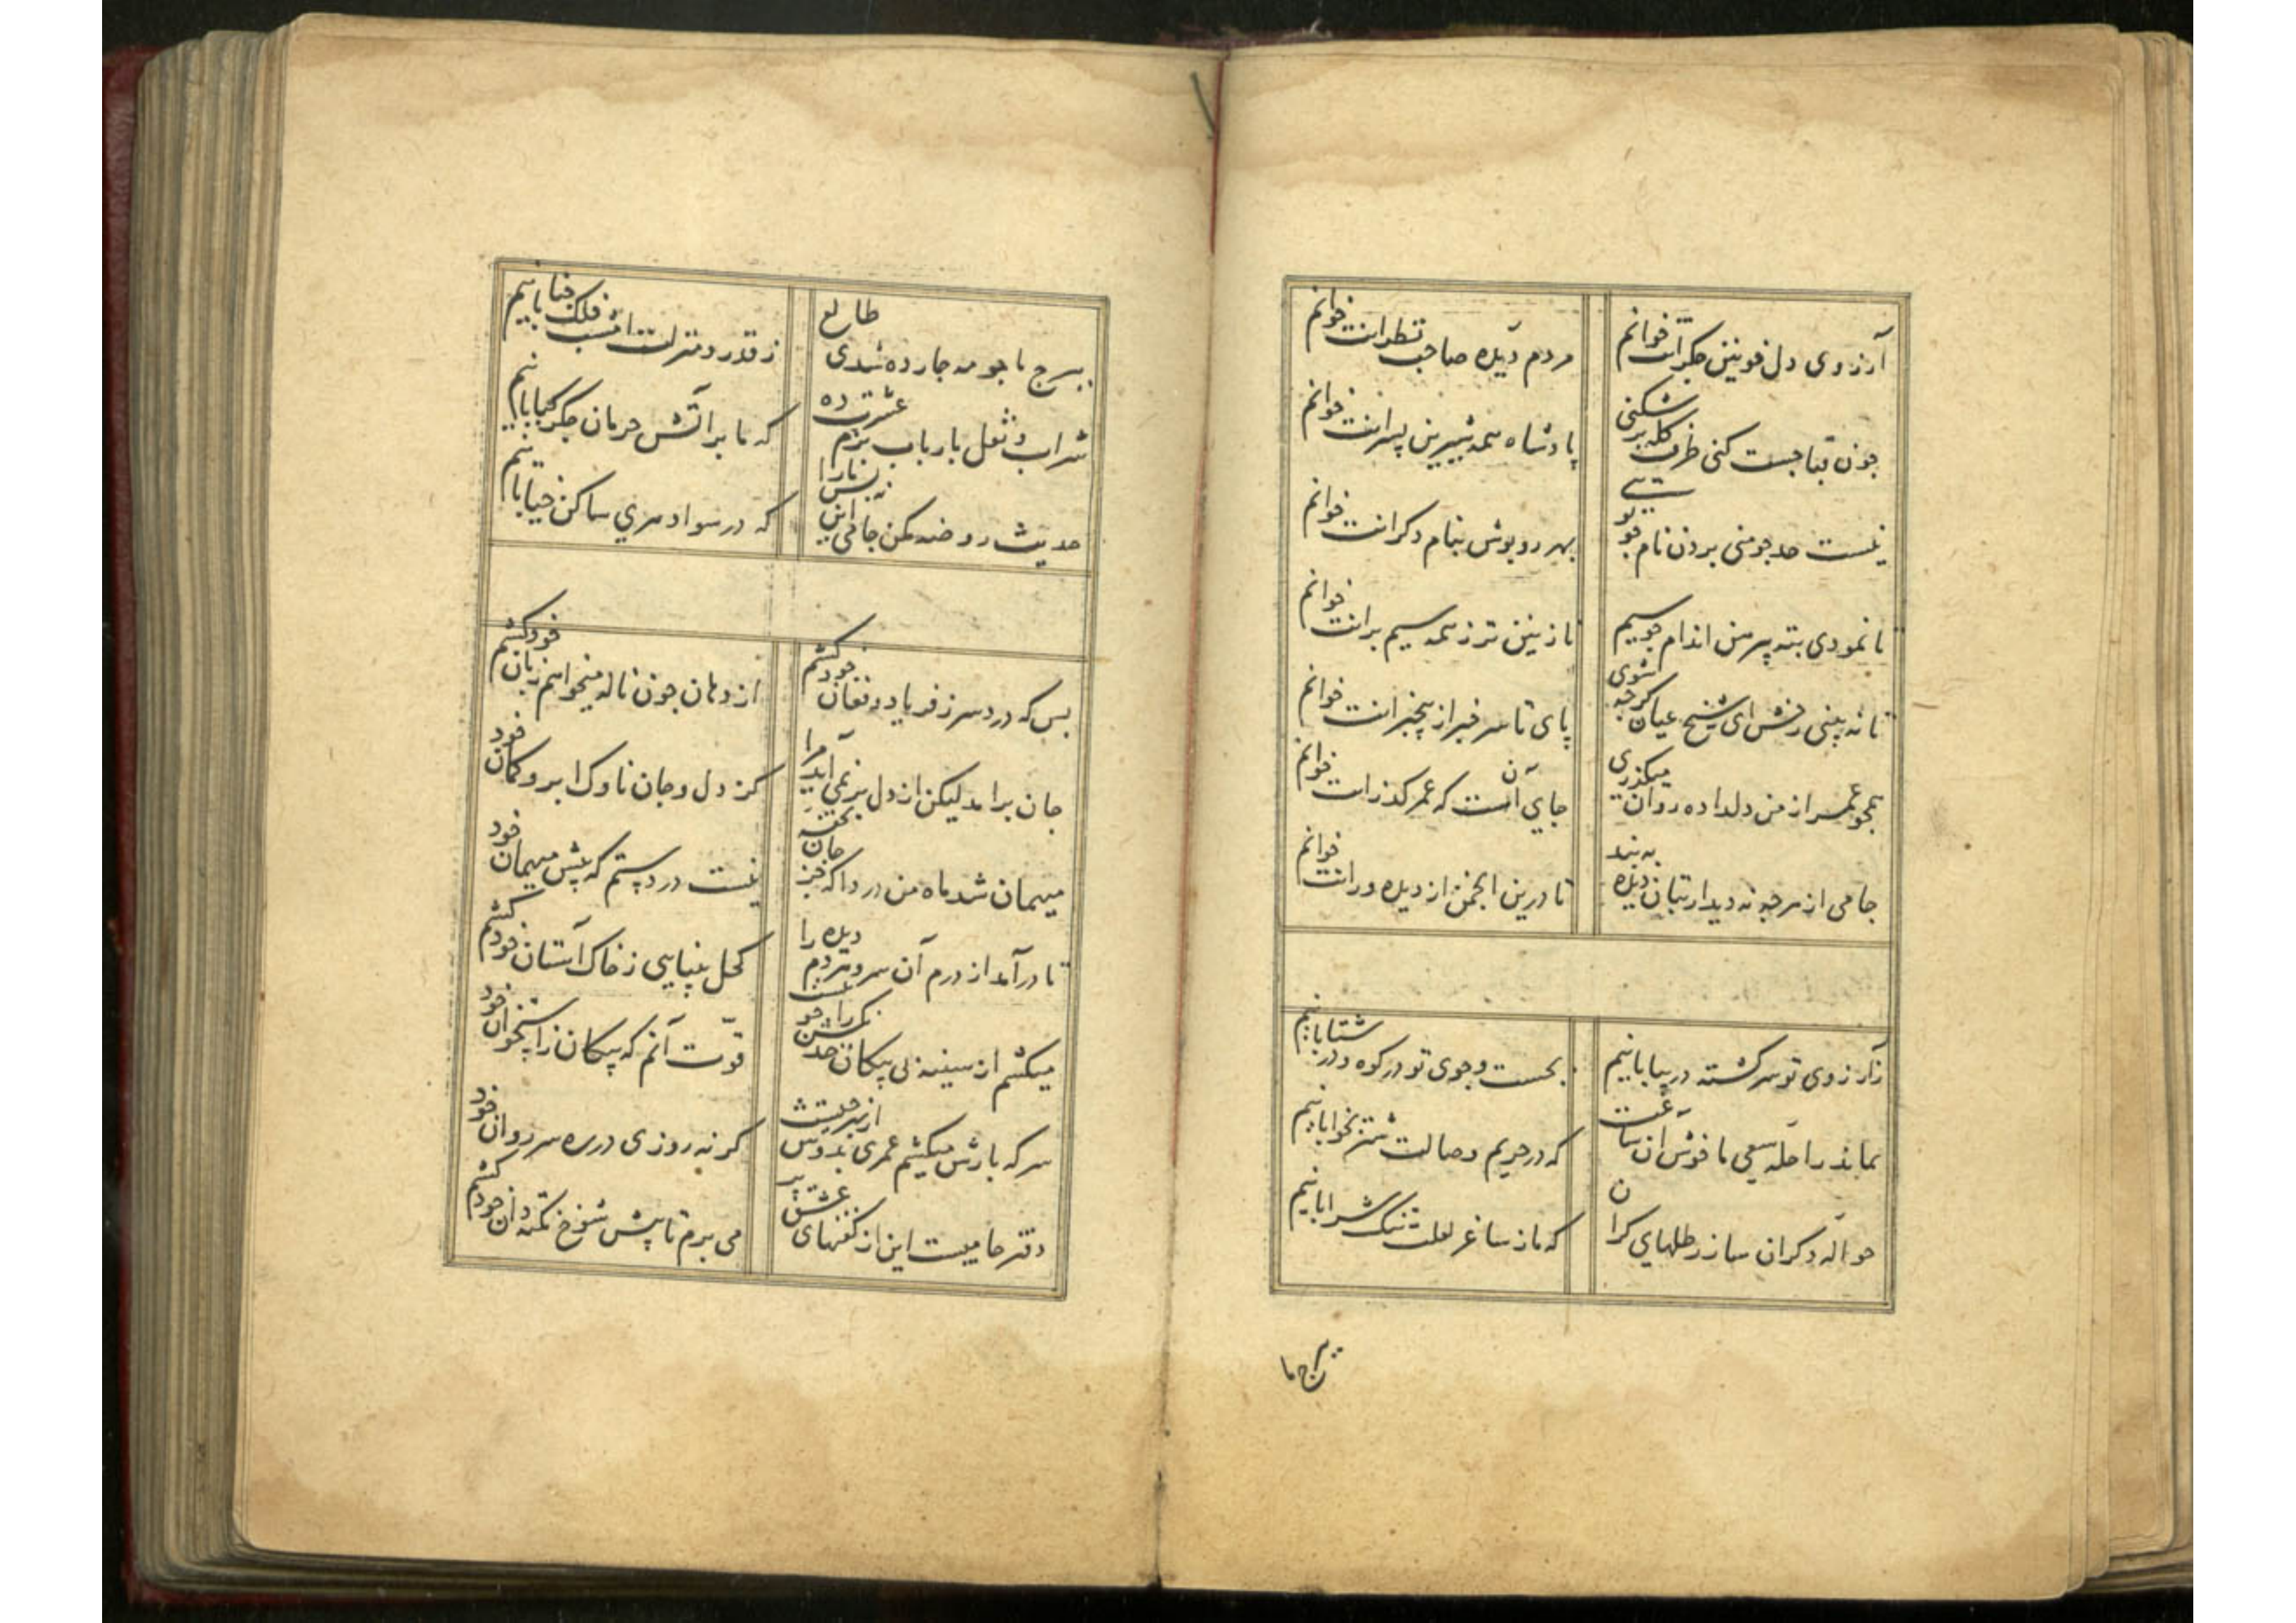 آرزوی دل خونین جگرانت خوانم
مردم دیده صاحب نظرانت خوانم
جون قبا جست کنی طرف کله بر شکنی
پادشاه همه شیرین پسرانت خوانم
نیست حد جو منی بردن نام جو تویی
بهر روپوش بنام دکرانت خوانم
تا نمودی بته پیرهن اندام جو سیم
نازنین تر ز همه سیم برانت خوانم
تا نه بینی رخش ای شیخ عیان کرجه شوی
پای تا سر خبر از بیخبرانت خوانم
همجو عمر از من دلداده روان میکذری
جای آنست که عمر کذرانت خوانم
جامی از هرجه نه دیدار بتان دیده به بند
تا درین انجمن از دیده ورانت خوانم
ز آرزوی تو سرکشته در بیابانیم
بجست وجوی تو در کوه و در شتابانیم
بماند راحله سعی ما خوش آن ساعت
که در حریم وصالت شتر بخوابانیم
حواله دکران ساز رطلهای کران
که ما ز ساغر لعلت تنک شرابانیم
ببرج ما
ببرج ما جو مه جارده شدی طالع
ز قدر و منزلت امشب فلک جنابانیم
شراب و نقل بارباب بزم عشرت ده
که ما بر آتش حرمان جکر کبابانیم
حدیث روضه مکن جامی این نه بس ما را
که در سواد هری ساکن خیابانیم
بس که دردسر ز فریاد و فغان خود کشم
از دهان جون ناله میخواهم زبان خود کشم
جان برامد لیکن از دل بر نمی آید مرا
کز دل و جان ناوک ابرو کمان خود
میهمان شد ماه من دردا که جز تحفه جان
نیست در دستم که پیش میهمان خود
تا درآمد از درم آن سرو مردم دیده را
کحل بینایی ز خاک آستان خود کشم
میکشم از سینه نی پیکان خدنکش را جو نیست
قوت آنم که پیکان ز استخوان خود
سر که بارش میکشم عمری بدوش از بهر جیست
کر نه روزی در ره سرو روان خود
دفتر جامیست این از نکتهای عشق پر
می برم تا پیش شوخ نکته دان خود کشم